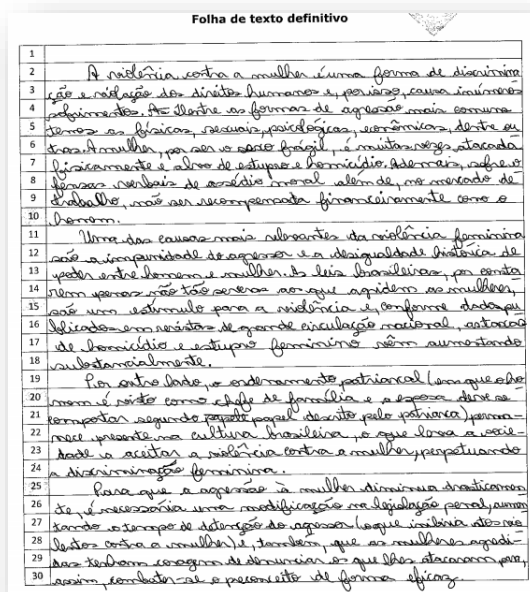 Folha de texto definitivo
1
2 A violência contra a mulher é uma forma de discrimina
3 ção e violação dos direitos humanos e, por isso, causa inúmeros
4 sofrimentos. Dentre as formas de agressão mais comuns
5 temos as físicas, sexuais, psicológicas, econômicas, dentre ou
6 tras. A mulher, por ser o sexo frágil, é muitas vezes, atacada
7 fisicamente e alvo de estupro e homicídio. Ademais, sofre o
8 fensas verbais de assédio moral além de, no mercado de
9 trabalho, não ser recompensada financeiramente como o
10 homem.
11 Uma das causas mais relevantes da violência feminina
12 são a impunidade do agressor e a desigualdade histórica de
13 poder entre homem e mulher. As leis brasileiras, por conta
14 rem penas não tão severas aos que agridem as mulheres,
15 são um estímulo para a violência e, conforme dados pu
16 blicados em revistas de grande circulação nacional, as taxas
17 de homicídio e estupro feminino vêm aumentando
18 substancialmente.
19 Por outro lado, o ordenamento patriarcal (em que o ho
20 mem é visto como chefe de família e a esposa deve se
21 comportar segundo papel descrito pelo patriarca) perma-
22 nece presente na cultura brasileira, o que leva a socie-
23 dade a aceitar a violência contra a mulher, perpetuando
24 a discriminação feminina.
25 Para que a agressão à mulher diminua drasticamen
26 te, é necessária uma modificação na legislação penal, aumen
27 tando o tempo de detenção do agressor (o que inibiria atos vio
28 lentos contra a mulher) e, também, que as mulheres agredi-
29 das tenham coragem de denunciar os que lhes atacaram para,
30 assim, combater-se o preconceito de forma eficaz.